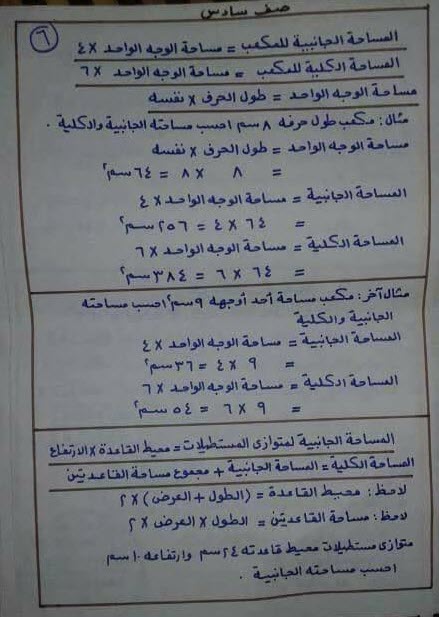 صف سادس
٦
المساحة الجانبية للمكعب = مساحة الوجه الواحد × ٤
المساحة الكلية للمكعب = مساحة الوجه الواحد × ٦
مساحة الوجه الواحد = طول الحرف × نفسه
مثال: مكعب طول حرفه ٨ سم احسب مساحته الجانبية والكلية .
مساحة الوجه الواحد = طول الحرف × نفسه
= ٨ × ٨ = ٦٤ سم٢
المساحة الجانبية = مساحة الوجه الواحد × ٤
= ٦٤ × ٤ = ٢٥٦ سم٢
المساحة الكلية = مساحة الوجه الواحد × ٦
= ٦٤ × ٦ = ٣٨٤ سم٢
مثال آخر: مكعب مساحة أحد أوجهه ٩ سم٢ احسب مساحته
الجانبية والكلية
المساحة الجانبية = مساحة الوجه الواحد × ٤
= ٩ × ٤ = ٣٦ سم٢
المساحة الكلية = مساحة الوجه الواحد × ٦
= ٩ × ٦ = ٥٤ سم٢
المساحة الجانبية لمتوازى المستطيلات = محيط القاعدة × الارتفاع
المساحة الكلية = المساحة الجانبية + مجموع مساحة القاعدتين
لاحظ: محيط القاعدة = (الطول + العرض) × ٢
لاحظ: مساحة القاعدتين = الطول × العرض × ٢
متوازى مستطيلات محيط قاعدته ٢٤ سم وارتفاعه ١٠ سم
احسب مساحته الجانبية .